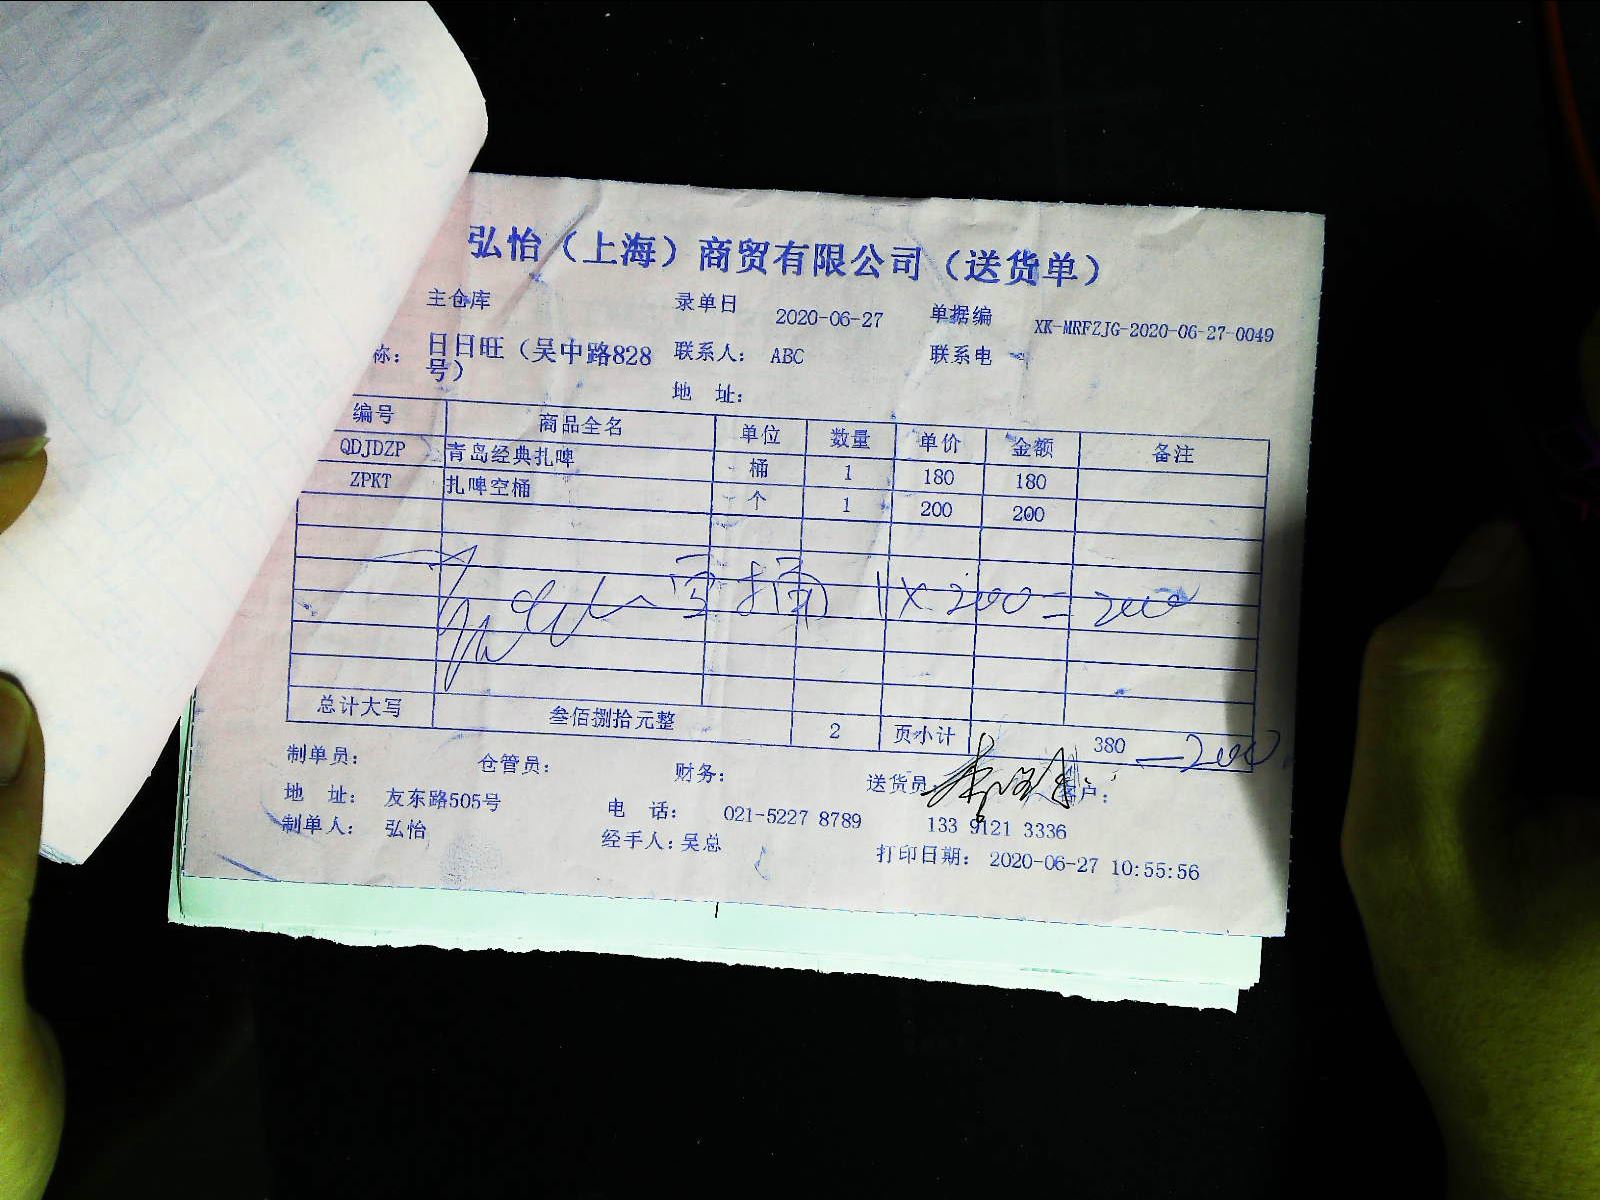 弘怡（上海）商贸有限公司（送货单）
主仓库 录单日 2020-06-27 单据编 XK-MRFZJG-2020-06-27-0049
称： 日日旺（吴中路828号） 联系人： ABC 联系电
地 址：
编号 商品全名 单位 数量 单价 金额 备注
QDJDZP 青岛经典扎啤 桶 1 180 180
ZPKT 扎啤空桶 个 1 200 200
空桶 1×200=200
总计大写 叁佰捌拾元整 2 页小计 380 —200
制单员： 仓管员： 财务： 送货员： 客户：
地 址： 友东路505号 电 话： 021-5227 8789 133 9121 3336
制单人： 弘怡 经手人：吴总 打印日期： 2020-06-27 10:55:56